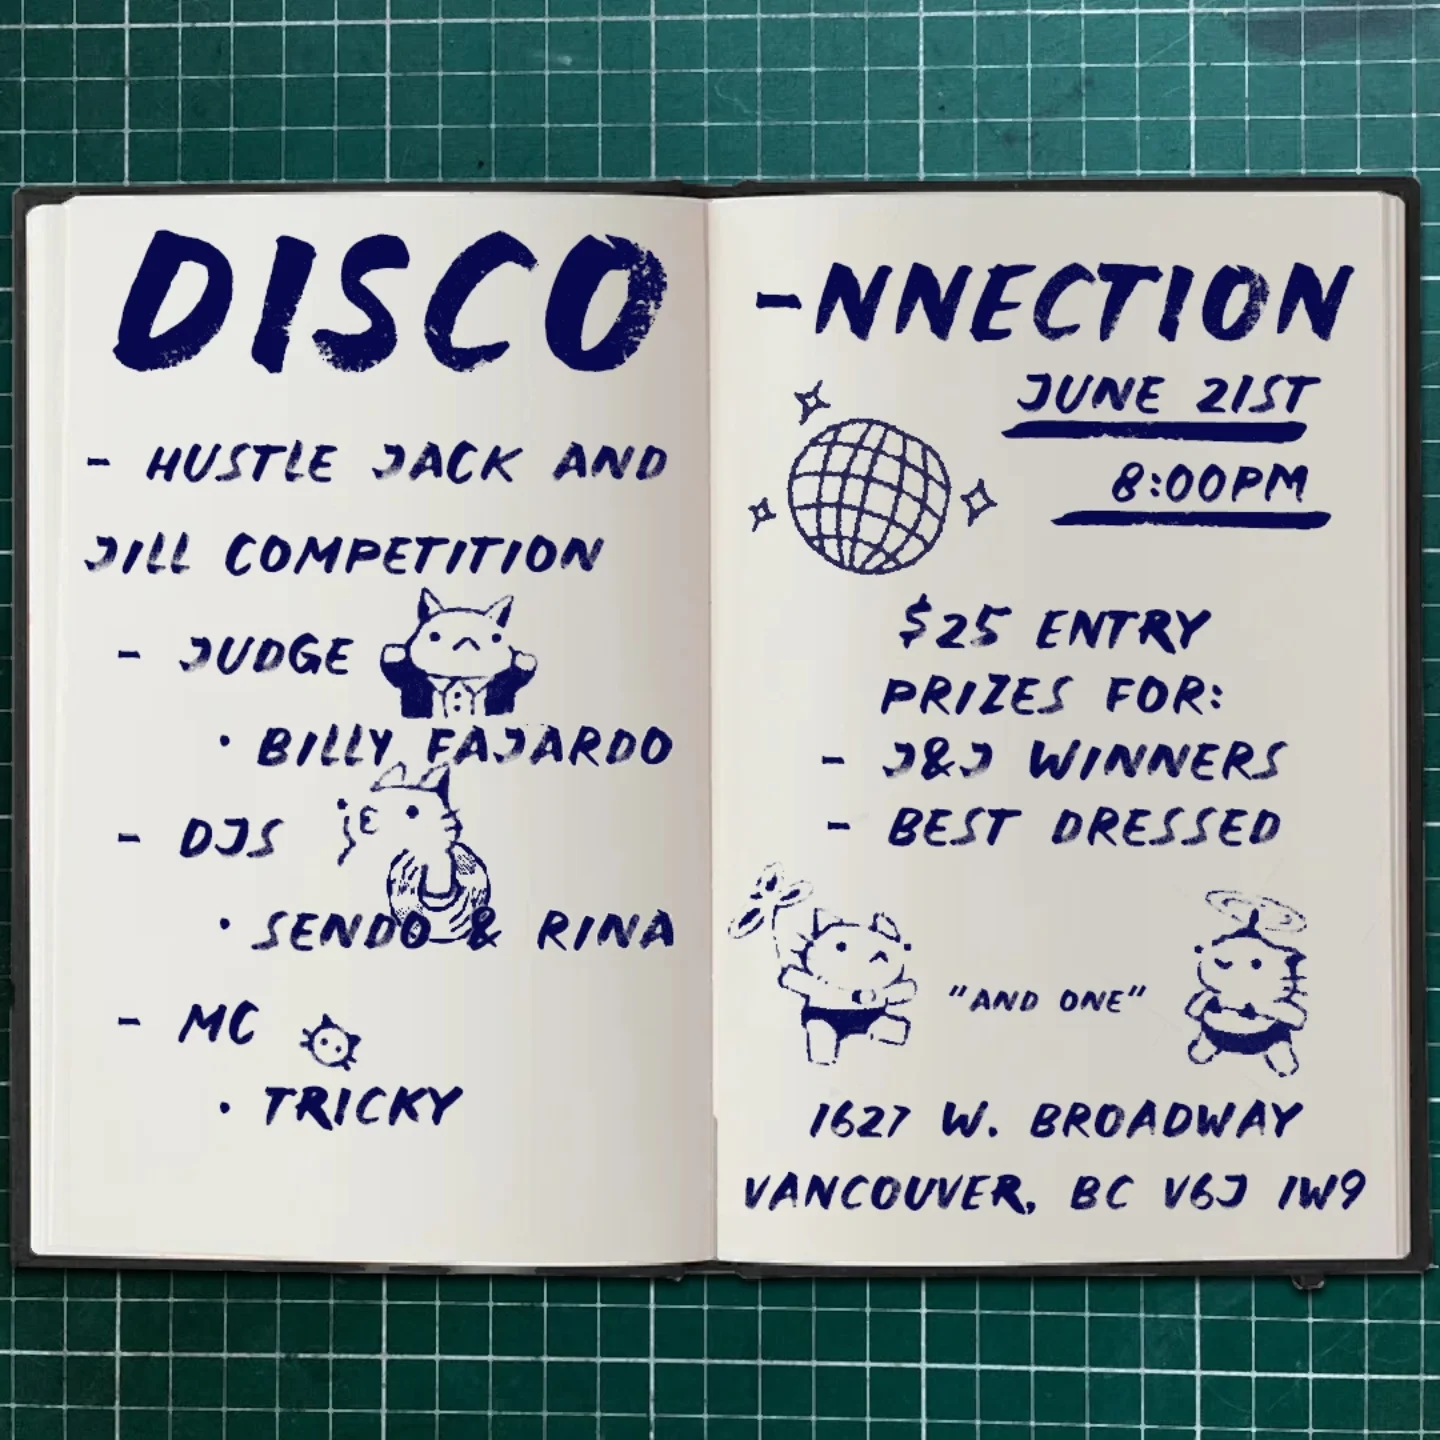 DISCO
- HUSTLE JACK AND
JILL COMPETITION
- JUDGE
· BILLY FAJARDO
- DJS
· SENDO & RINA
- MC
· TRICKY
-NNECTION
JUNE 21ST
8:00PM
$25 ENTRY
PRIZES FOR:
- J&J WINNERS
- BEST DRESSED
"AND ONE"
1627 W. BROADWAY
VANCOUVER, BC V6J 1W9